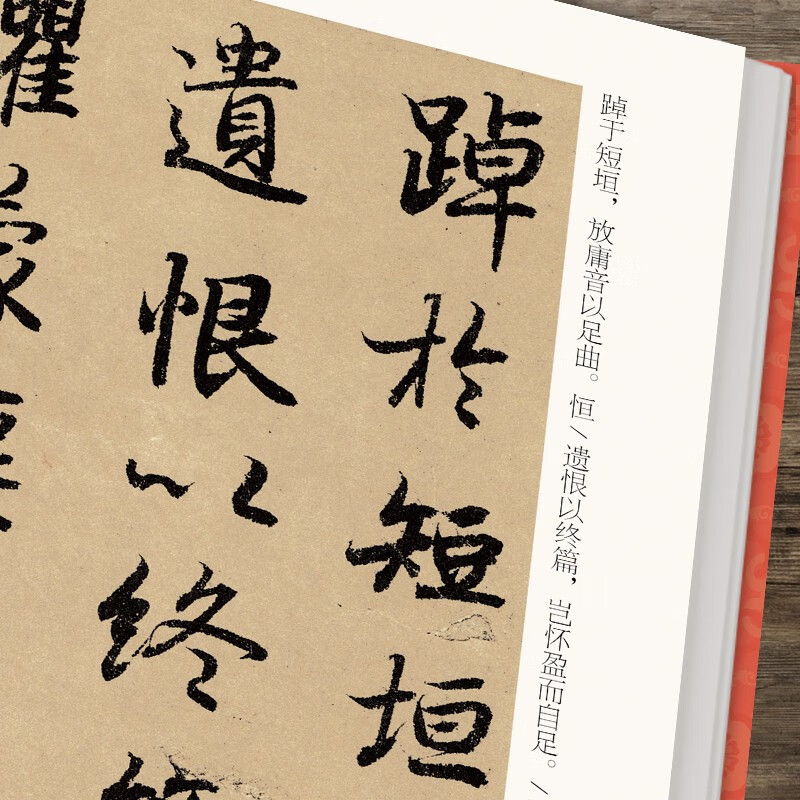 踔于短垣，放庸音以足曲。恒／遗恨以终篇，岂怀盈而自足。／
踔於短垣
遺恨以終